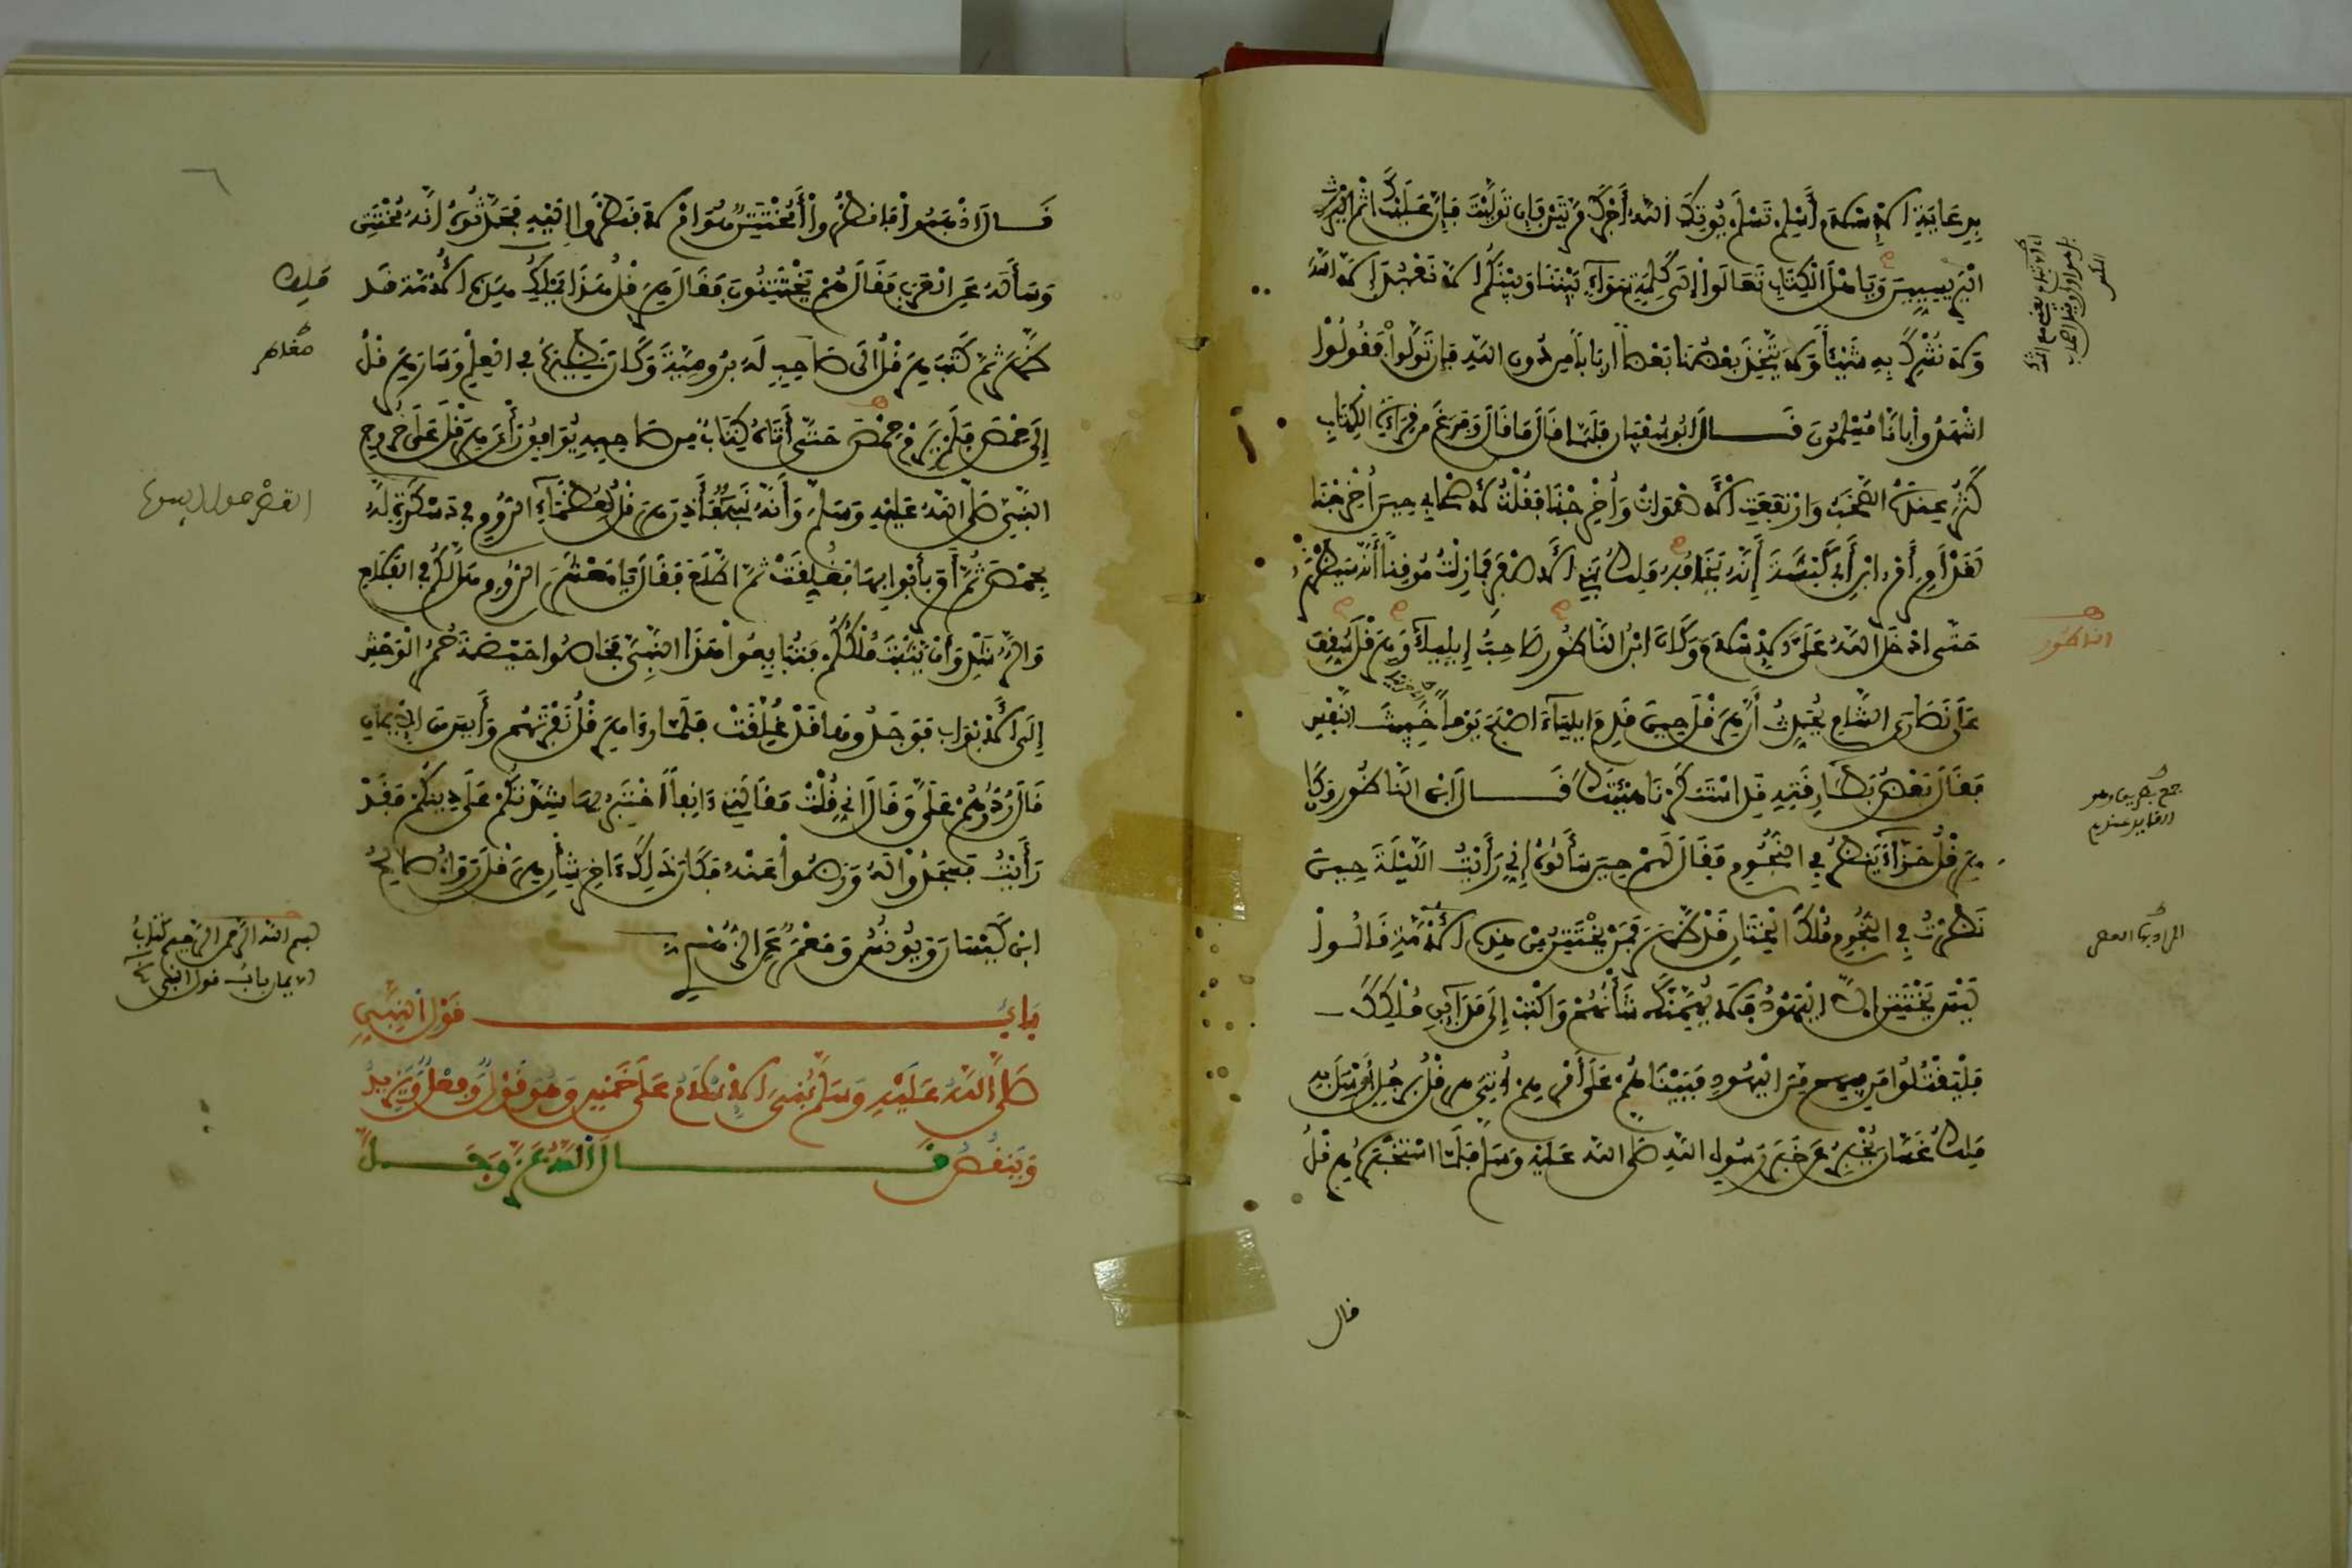 بدعاية الاسلام أسلم تسلم يوتك الله أجرك مرتين فإن توليت فإن عليك اثم
اليريسيين ويا هل الكتاب تعالوا إلى كلمة سواء بيننا وبينكم الا نعبد إلا الله
ولا نشرك به شيئا ولا يتخذ بعضنا بعضا اربابا من دون الله فإن تولوا فقولوا
اشهدوا بأنا مسلمون قال ابو سفيان فلما قال ما قال وفرغ من قراءة الكتاب
كثر عنده الصخب وارتفعت الأصوات وأخرجنا فقلت لأصحابي حين أخرجنا
لقد أمر أمر ابن أبي كبشة إنه يخافه ملك بني الأصفر فما زلت موقنا أنه سيظهر
حتى ادخل الله علي الاسلام وكان ابن الناطور صاحب إيلياء وهرقل سقف
على نصارى الشام يحدث أن هرقل حين قدم ايلياء اصبح يوما خبيث النفس
فقال بعض بطارقته قد استنكرنا هيئتك قال ابن الناطور وكان
هرقل حزاء ينظر في النجوم فقال لهم حين سألوه إني رأيت الليلة حين
نظرت في النجوم ملك الختان قد ظهر فمن يختتن من هذه الأمة قالوا
ليس يختتن إلا اليهود فلا يهمنك شأنهم واكتب إلى مداين ملكك
فليقتلوا من فيهم من اليهود فبينما هم على أمرهم أتي هرقل برجل أرسل به
ملك غسان يخبر عن خبر رسول الله صلى الله عليه وسلم فلما استخبره هرقل
قال
الناطور
قال اذهبوا فانظروا أمختتن هو ام لا فنظروا إليه فحدثوه أنه مختتن
وسأله عن العرب فقال هم يختتنون فقال هرقل هذا ملك هذه الأمة قد
ظهر ثم كتب هرقل الى صاحب له برومية وكان نظيره في العلم وسار هرقل
إلى حمص فلم يرم حمص حتى أتاه كتاب من صاحبه يوافق رأي هرقل على خروج
النبي صلى الله عليه وسلم وأنه نبي فأذن هرقل لعظماء الروم في دسكرة له
بحمص ثم أمر بأبوابها فغلقت ثم اطلع فقال يا معشر الروم هل لكم في الفلاح
والرشد وان يثبت ملككم فتبايعوا هذا النبي فحاصوا حيصة حمر الوحش
إلى الأبواب فوجدوها قد غلقت فلما رءا هرقل نفرتهم وأيس من الإيمان
قال ردوهم علي وقال اني قلت مقالتي ءانفا أختبر بها شدتكم على دينكم فقد
رأيت فسجدوا له ورضوا عنه فكان ذلك ءاخر شأن هرقل رواه صالح
ابن كيسان ويونس ومعمر عن الزهري
باب قول النبي
صلى الله عليه وسلم بني الاسلام على خمس وهو قول وفعل ويزيد
وينقص قال الله عز وجل
بسم الله الرحمن الرحيم كتاب
الايمان باب قول النبي